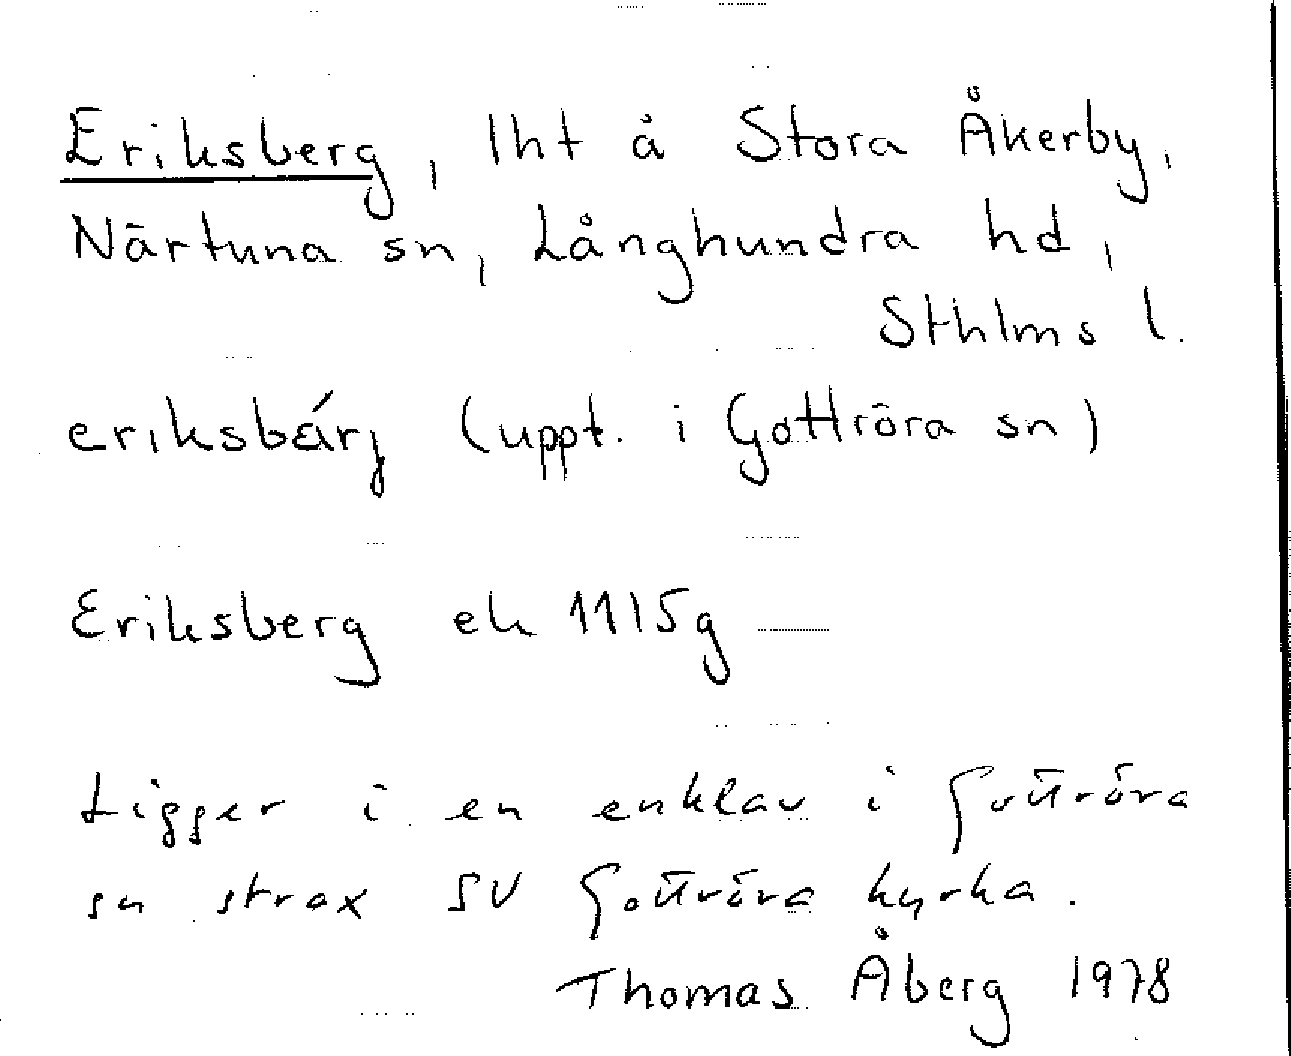 Eriksberg, lht å Stora Åkerby,
Närtuna sn, Långhundra hd,
Sthlms l.
eriksbárj (uppt. i Gottröra sn)
Eriksberg ek 11I5g
Ligger i en enklav i Gottröra
sn strax SV Gottröra kyrka.
Thomas Åberg 1978